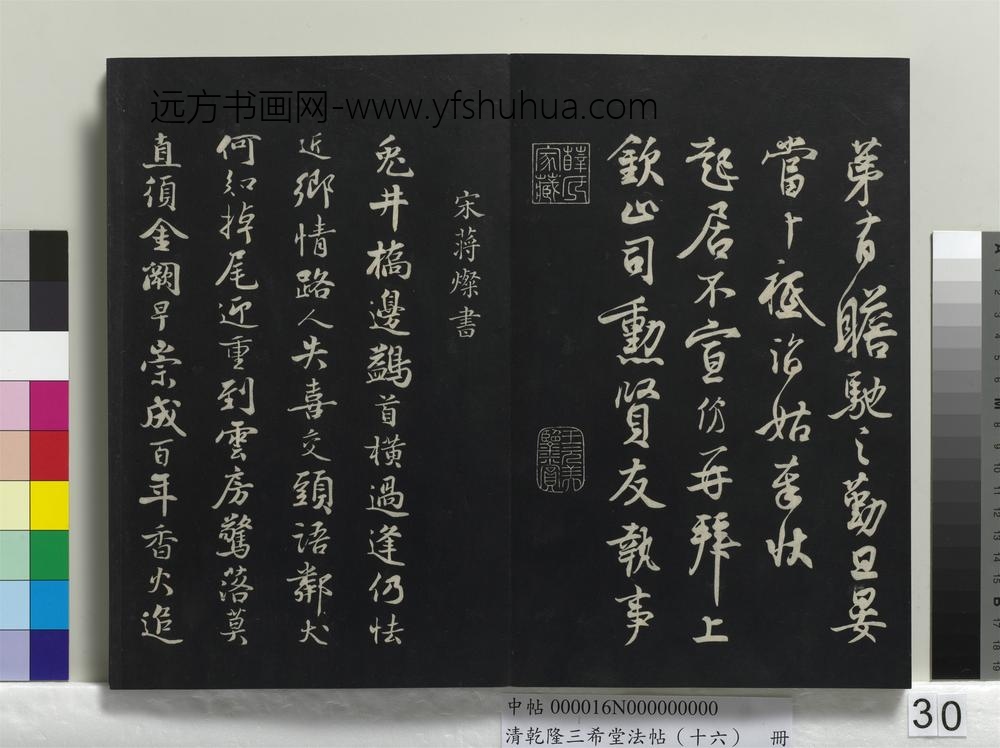 远方书画网-www.yfshuhua.com
弟有瞻馳之勤旦晏
當卜祗詣姑奉狀
起居不宣份再拜上
欽止司勳賢友執事
薛氏家藏
宋蔣燦書
兔井橋邊鷁首橫過逢仍怯
近鄉情路人失喜交頭語鄰犬
何知掉尾迎重到雲房驚落莫
直須金闕早崇成百年香火追
中帖 000016N000000000
清乾隆三希堂法帖（十六） 冊
30